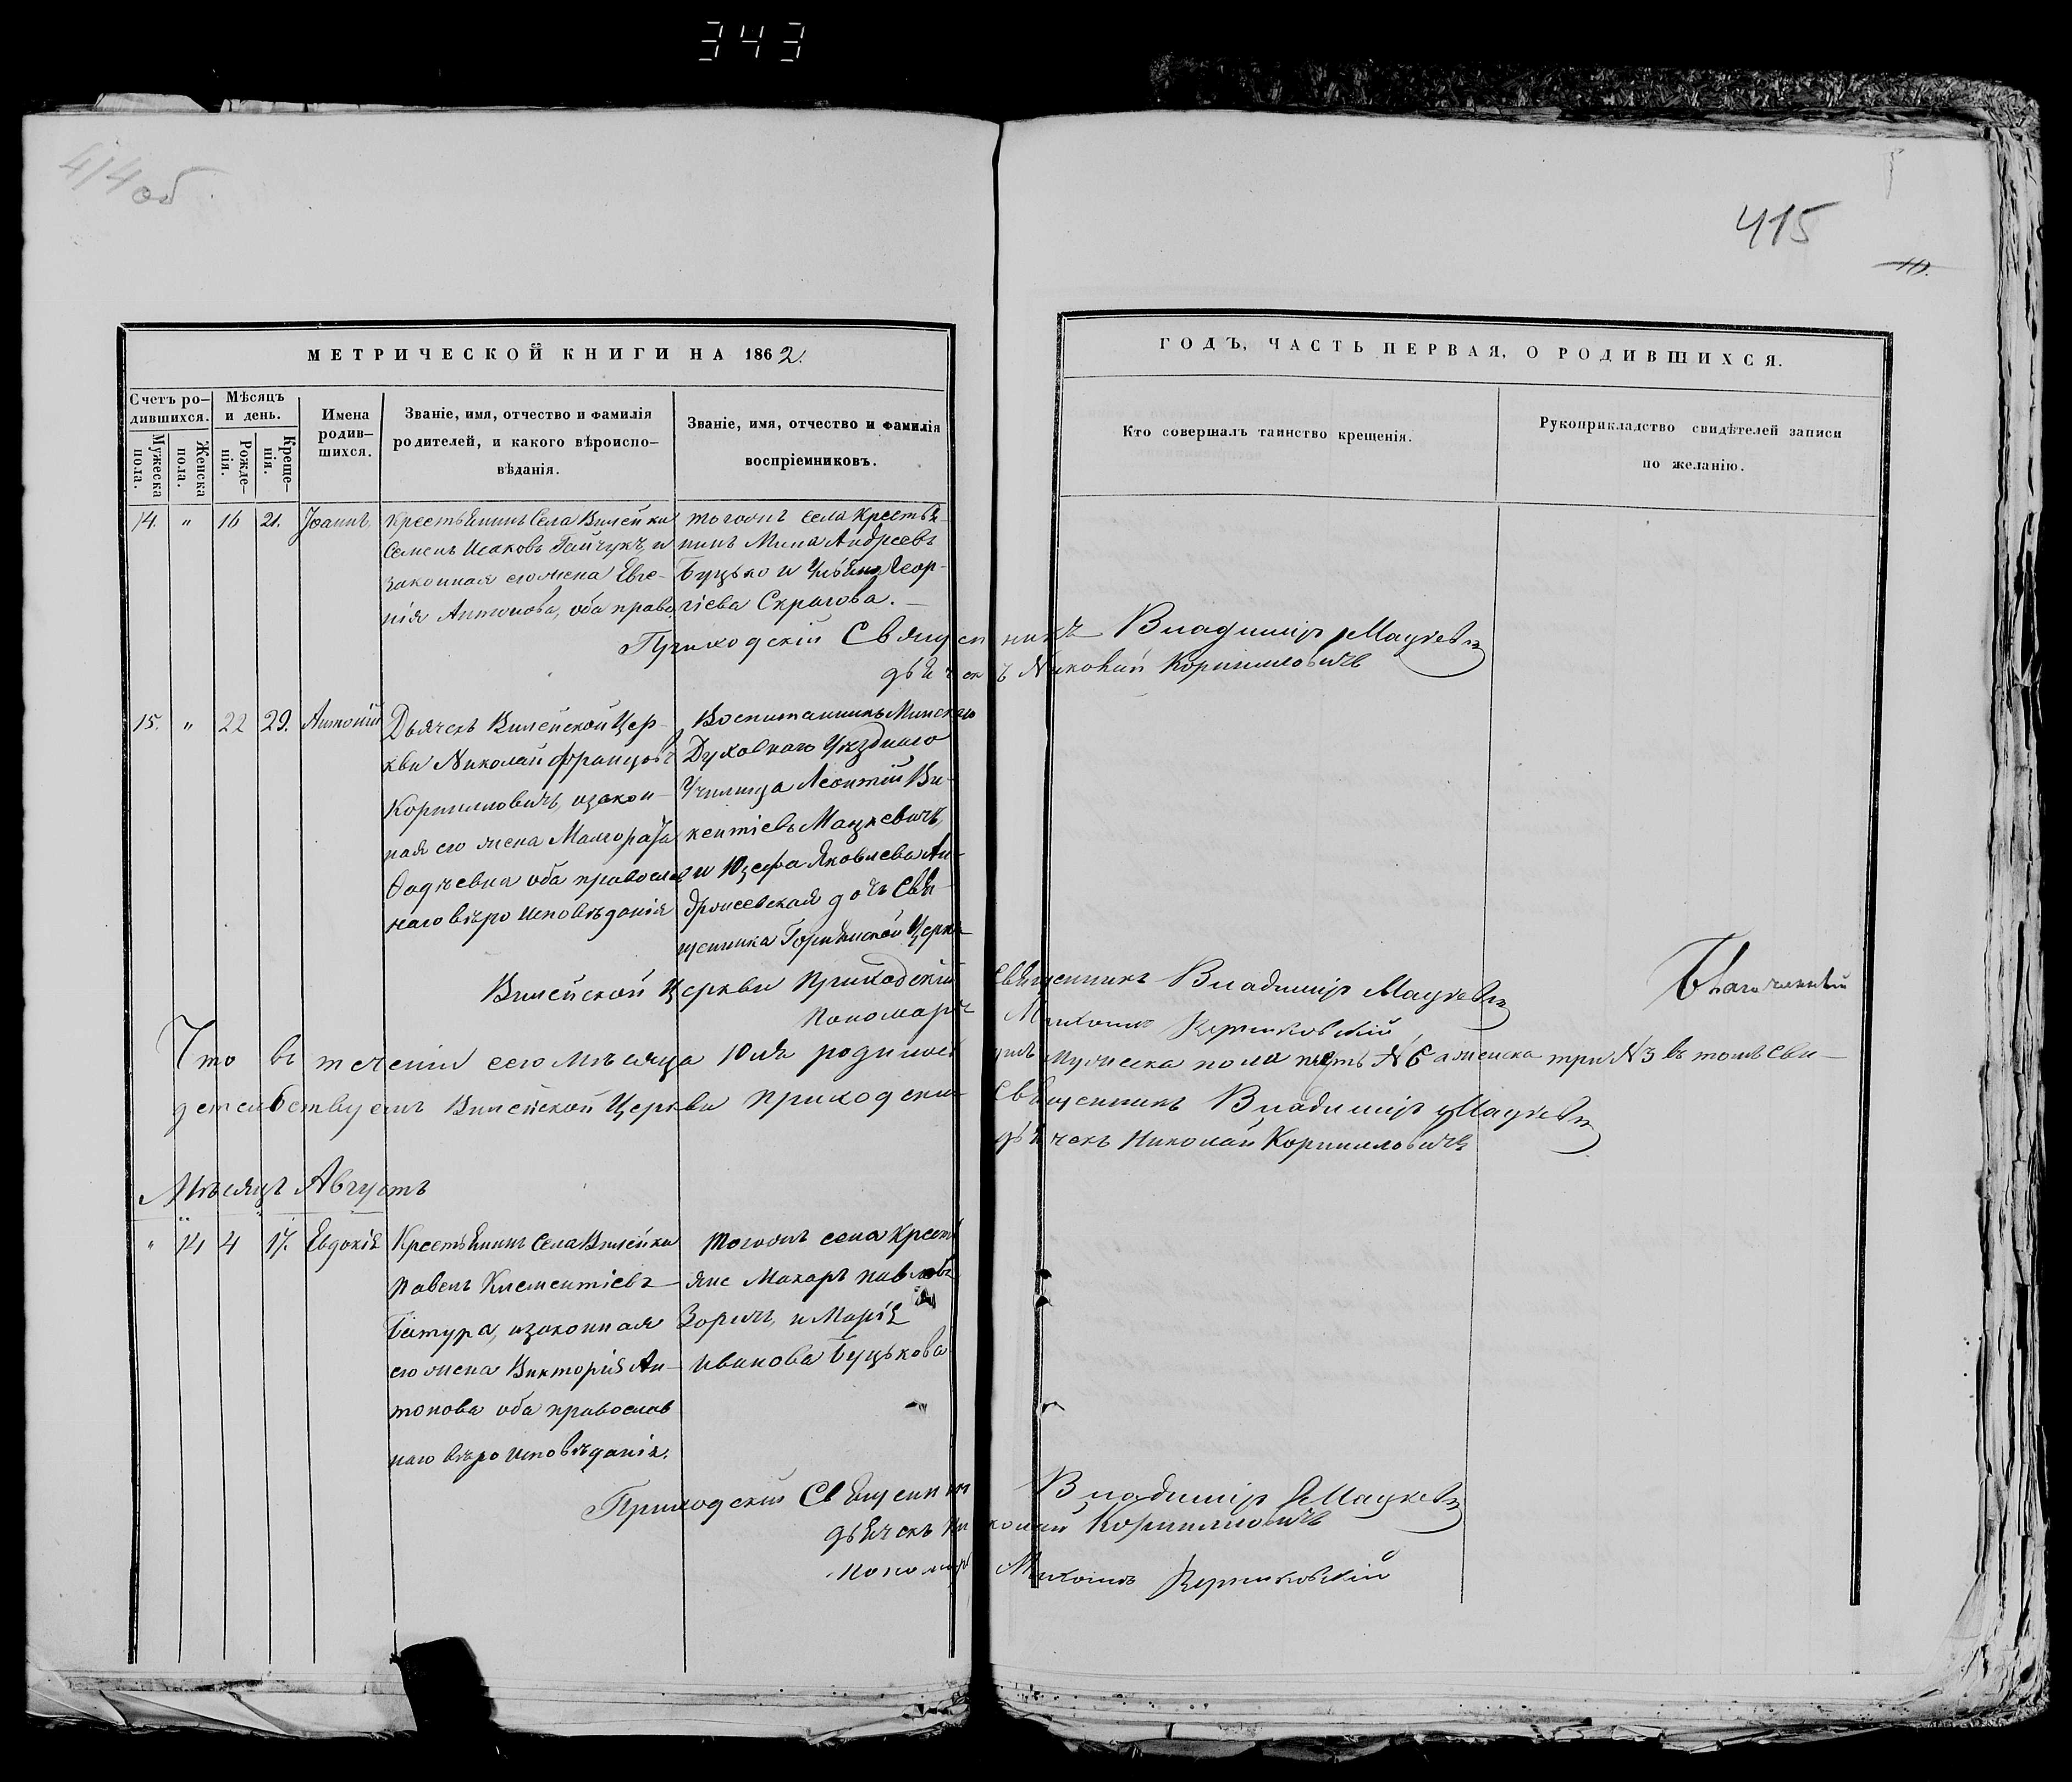 343
414 об.
415
10.
МЕТРИЧЕСКОЙ КНИГИ НА 1862.
ГОДЪ, ЧАСТЬ ПЕРВАЯ, О РОДИВШИХСЯ.
Счетъ ро-
дившихся.
Мужеска
пола.
Женска
пола.
Мѣсяцъ
и день.
Рожде-
нія.
Креще-
нія.
Имена
родив-
шихся.
Званіе, имя, отчество и фамилія
родителей, и какого вѣроиспо-
вѣданія.
Званіе, имя, отчество и фамилія
воспріемниковъ.
Кто совершалъ таинство крещенія.
Рукоприкладство свидѣтелей записи
по желанію.
14. " 16 21. Іоаннъ
Крестьянинъ Села Вилейки
Семенъ Исаковъ Гайчукъ, и
законная его жена Евге-
нія Антонова, оба право.
тогожъ села Крестья-
нинъ Мина Андреевъ
Буцько и Геор-
гіева Скрагова.
Приходскій Священникъ Владиміръ Мацкевичъ
дьячекъ Николай Корниловичъ
15. " 22 29. Антоній
Дьячекъ Вилейской Цер-
кви Николай Францовъ
Корниловичъ, и закон-
ная его жена Малгората
оба православ
наго вѣроисповѣданія
Воспитанникъ Минскаго
Духовнаго Уѣзднаго
Училища Леонтій Ви-
кентіевъ Мацкевичъ,
и Юзефа Яковлева Ан-
дрожевская дочь Свя-
щенника Церкв
Вилейской Церкви Приходскій Священникъ Владиміръ Мацкевичъ
Пономарь
Благочинный
Что въ теченіи сего мѣсяца Юля родилось мужеска пола шесть №6 а женска три №3 въ томъ сви-
детельствуемъ Вилейской Церкви приходскій Священникъ Владиміръ Мацкевичъ
дьячекъ Николай Корниловичъ
Мѣсяцъ Августъ
" 14 4 17. Евдокія
Крестьянинъ Села Вилейки
Павелъ Климентіевъ
Батура, и законная
его жена Викторія Ан-
тонова оба православ
наго вѣроисповѣданія.
тогожъ села Кресть
яне Макаръ Павловъ
Зоричъ, и Марія
Иванова Буцькова
Приходскій Священникъ Владиміръ Мацкевичъ
дьячекъ Николай Корниловичъ
Пономарь